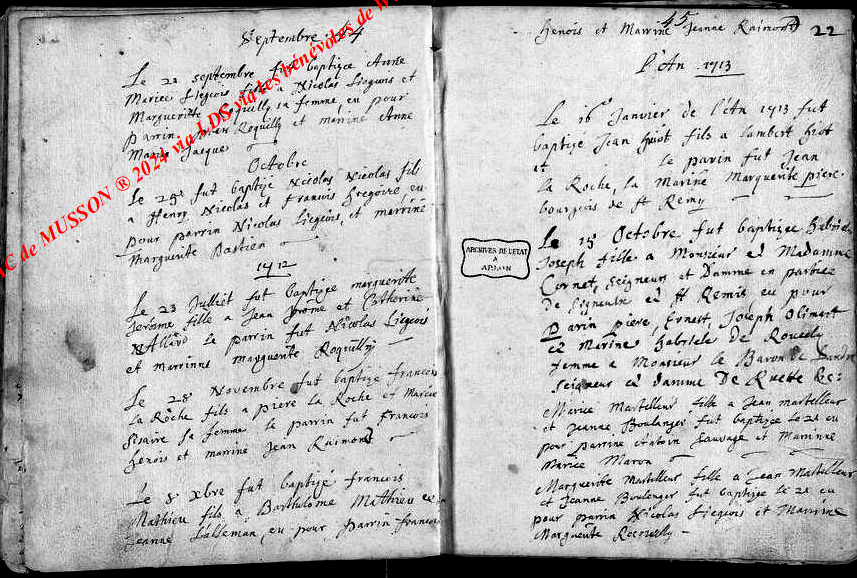 Septembre 44
Le 22 septembre fut baptizée Anne
Mariee Liegeois fille a Nicolas Liegeois et
Margueritte Roquilly sa femme, eu pour
parrin Roquilly et marrine Anne
Marie Jacque
Octobre
Le 25e fut baptizé Nicolas Nicolas fils
a Henry Nicolas et Francois Gregoire, eu
pour parrin Nicolas Liegeois, et marrine
Marguerite Bastien
1712
Le 23 Julliet fut baptizée margueritte
Jerome fille a Jean Jerome et Catherine
Allard le parrin fut Nicolas Liegeois
et marrinne margueritte Roquilly
Le 28e Novembre fut baptizé francois
La Roche fils a piere La Roche et Mariee
sa femme le parrin fut francois
henois et marrine Jean Raimond
Le 8e xbre fut baptizé francois
Mathieu fils a Bartholome Mathieu et
Jeanne Lalleman, eu pour parrin francois
AC de MUSSON ® 2024 via LDS via les bénévoles de
45
henois et Marrine Jeanne Raimond 22
l'An 1713
Le 16e Janvier de l'An 1713 fut
baptizé Jean hiot fils a lambert hiot
et le parin fut Jean
la Roche, la Marine Marguerite piere
bourgois de St Remy
Le 15 Octobre fut baptizee Gabriele
Joseph fille a Monsieur et Madamme
Cornet, seigneurs et Damme en partiee
De seigneurie et St Remis eu pour
Parin piere, Ernest, Joseph
et Marine Gabriele de
femme a Monsieur le Baron de
seigneur et damme De Ruette &c:
Mariee Martelleur fille a Jean martelleur
et Jeanne Boulanger fut baptizée le 2e eu
pour parrine Antoin Sauvage et Marrinne
Mariee Maron
Marguerite Martelleur fille a Jean Martelleur
et Jeanne Boulenger fut baptizée le 2e eu
pour parrin Nicolas Liegeois et Marrine
Marguerite Rocquilly
ARCHIVES DE L'ETAT
A
ARLON